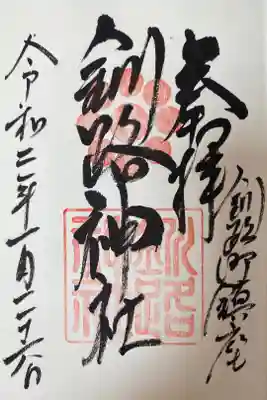 奉拝
釧路町鎮座
釧路神社
令和二年一月二十六日